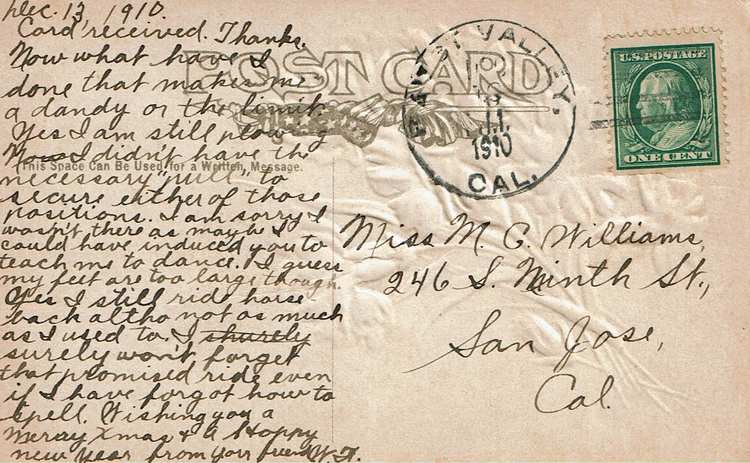 Dec. 13, 1910.
Card received. Thanks.
Now what have I
done that makes me
a dandy or the limit.
Yes I am still plowing
I didn't have the
necessary "pull" to
secure either of those
positions. I am sorry I
wasn't there as maybe I
could have induced you to
teach me to dance. I guess
my feet are too large though.
Yes I still ride horse
back altho not as much
as I used to. I shurely
surely won't forget
that promised ride even
if I have forgot how to
spell. Wishing you a
Merry Xmas & A Happy
new year from your friend
POST CARD
This Space Can Be Used for a Written Message.
VALLEY,
1910
CAL.
U.S. POSTAGE
ONE CENT
Miss M. C. Williams,
246 S. Ninth St.,
San Jose,
Cal.